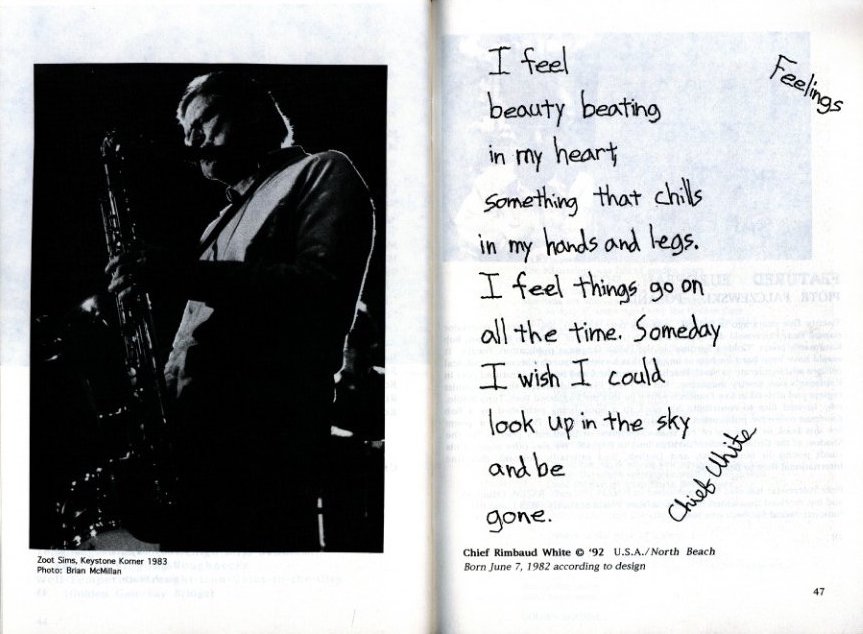 Zoot Sims, Keystone Korner 1983
Photo: Brian McMillan
Feelings
I feel
beauty beating
in my heart,
something that chills
in my hands and legs.
I feel things go on
all the time. Someday
I wish I could
look up in the sky
and be
gone.
Chief White
Chief Rimbaud White © '92 U.S.A./North Beach
Born June 7, 1982 according to design
47